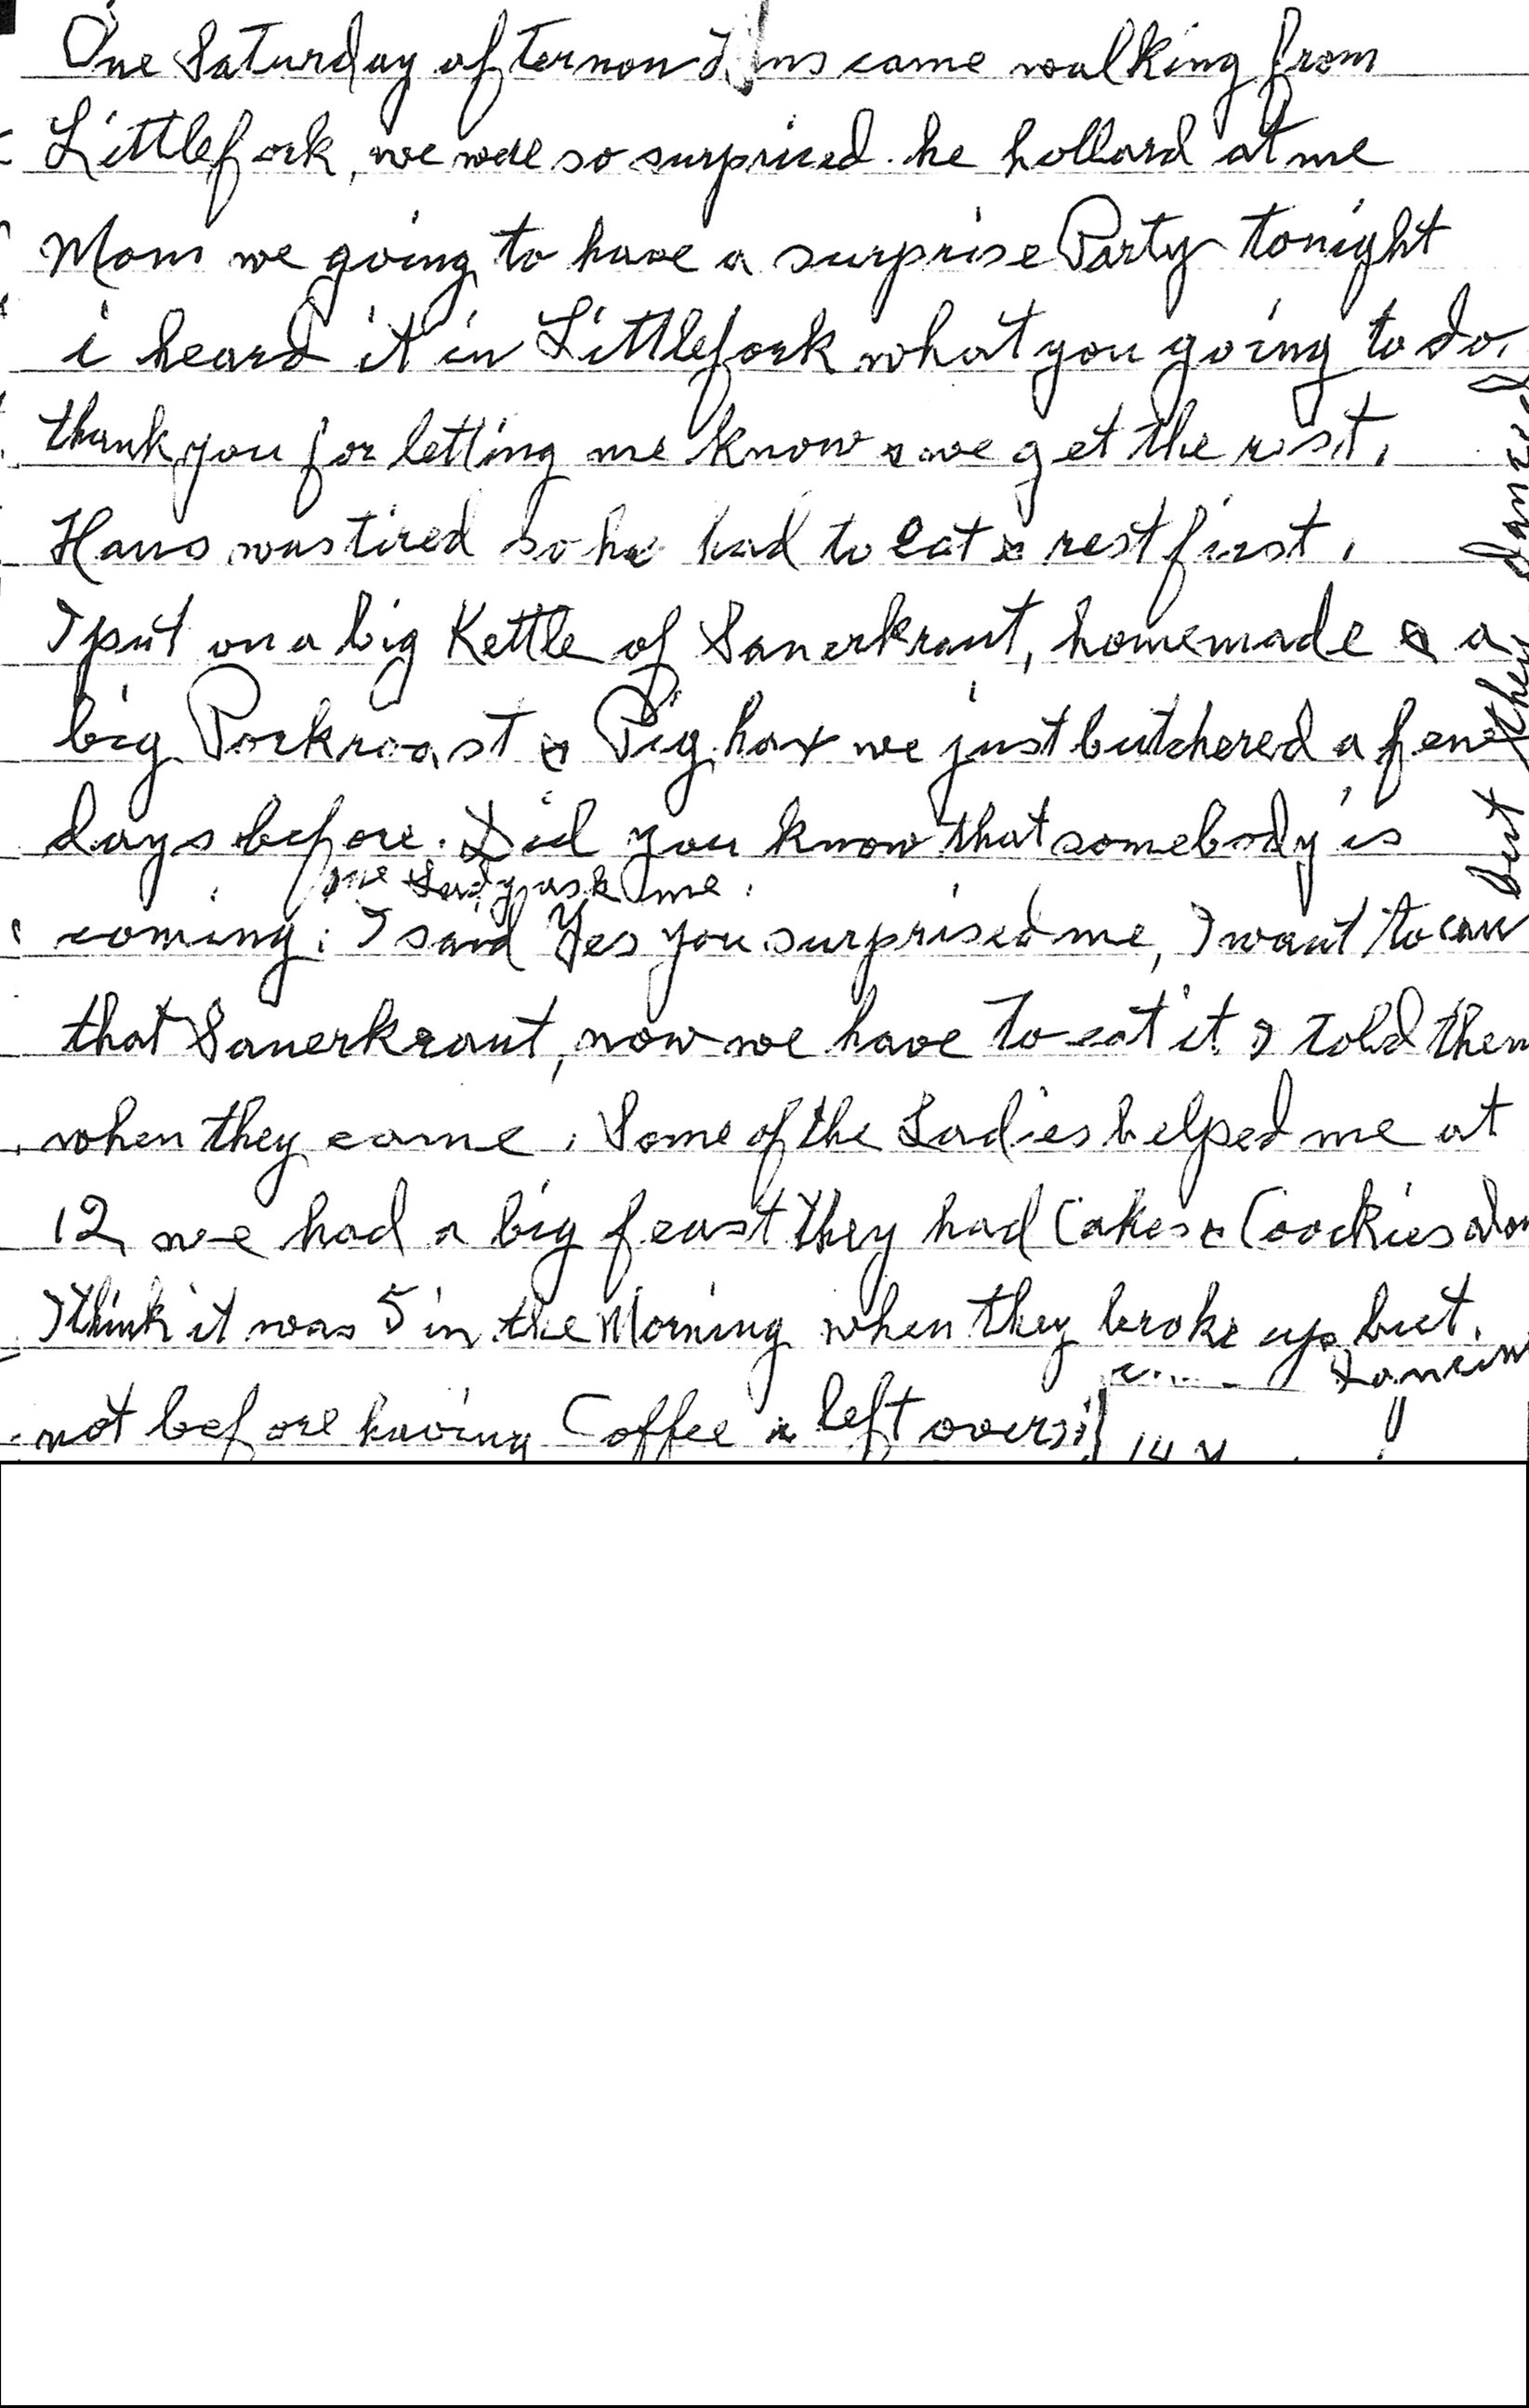 One Saturday afternon Hans came walking from
Littlefork, we were so surpriced. he hollard at me
Mom we going to have a surprise Party tonight
i heard it in Littlefork what you going to do.
thank you for letting me know & we get the rest.
Hans was tired so he had to eat & rest first.
I put on a big Kettle of Sauerkraut, homemade & a
big Porkroast & Pig hax we just butchered a few
days before. Did you know that somebody is
one Lady ask me.
coming: I said Yes you surprised me, I want to can
that Sauerkraut, now we have to eat it I told them
when they came. Some of the Ladies helped me at
12 we had a big feast they had Cakes & Coockies
I think it was 5 in the Morning when they broke up but.
not before having Coffee & left overs
but they danced